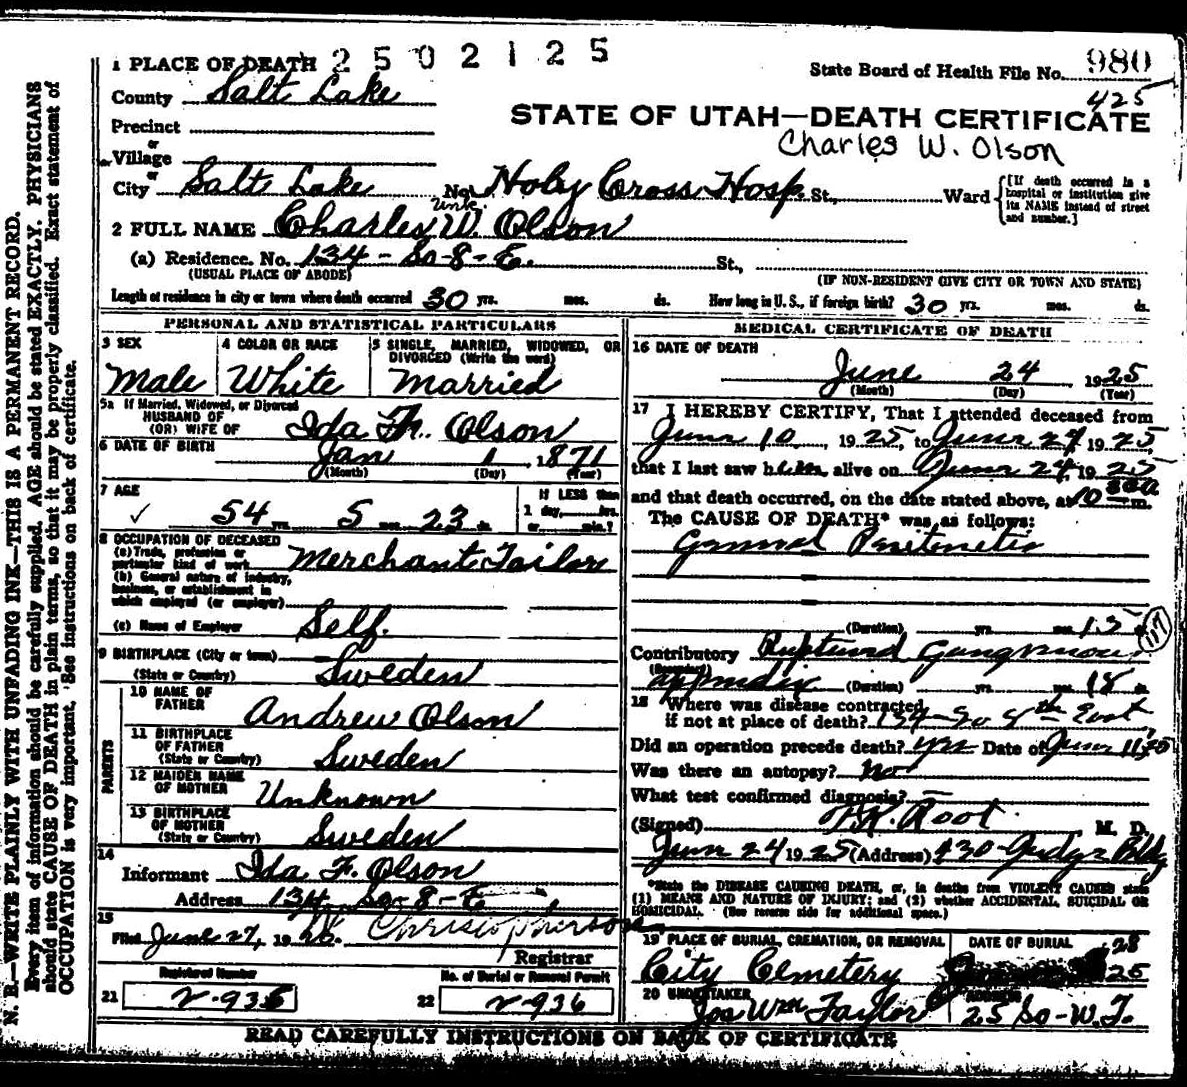 1 PLACE OF DEATH 2502125
State Board of Health File No. 980
425
County Salt Lake
STATE OF UTAH—DEATH CERTIFICATE
Precinct
Charles W. Olson
or
Village
or
City Salt Lake No. Holy Cross Hosp. St., Ward [If death occurred in a hospital or institution give its NAME instead of street and number.]
Unk.
2 FULL NAME Charles W. Olson
(a) Residence. No. 134 - So - 8 - E. St.,
(USUAL PLACE OF ABODE) (IF NON-RESIDENT GIVE CITY OR TOWN AND STATE)
Length of residence in city or town where death occurred 30 yrs. mos. ds. How long in U. S., if foreign birth? 30 yrs. mos. ds.
PERSONAL AND STATISTICAL PARTICULARS
3 SEX 4 COLOR OR RACE 5 SINGLE, MARRIED, WIDOWED, OR
DIVORCED (Write the word)
Male White Married
5a If Married, Widowed, or Divorced
HUSBAND OF
(OR) WIFE OF Ida Olson
6 DATE OF BIRTH Jan 1 1871
(Month) (Day) (Year)
7 AGE IF LESS than
1 day, hrs.
54 yrs. 5 mos. 23 ds. or min.?
8 OCCUPATION OF DECEASED
(a) Trade, profession or
particular kind of work Merchant Tailor
(b) General nature of industry,
business, or establishment in
which employed (or employer)
(c) Name of Employer Self.
9 BIRTHPLACE (City or town)
(State or Country) Sweden
PARENTS
10 NAME OF
FATHER Andrew Olson
11 BIRTHPLACE
OF FATHER
(State or Country) Sweden
12 MAIDEN NAME
OF MOTHER Unknown
13 BIRTHPLACE
OF MOTHER
(State or Country) Sweden
14
Informant Ida F. Olson
Address 134 So - 8 - E
15
Filed June 27, 19
Registrar
Registered Number No. of Burial or Removal Permit
21 2-935 22 2-936
MEDICAL CERTIFICATE OF DEATH
16 DATE OF DEATH
June 24 1925
(Month) (Day) (Year)
17 I HEREBY CERTIFY, That I attended deceased from
June 10, 1925, to June 24, 1925,
that I last saw h alive on June 24, 1925
and that death occurred, on the date stated above, at 10 m.
The CAUSE OF DEATH* was as follows:
General Peritonitis
(Duration) yrs. mos. 13 ds.
117
Contributory Ruptured Gangrenous
(Secondary) appendix (Duration) yrs. mos. 18 ds.
18 Where was disease contracted
if not at place of death? 134 - So 8th East
Did an operation precede death? yes Date of June 11, 25
Was there an autopsy? No
What test confirmed diagnosis? —
(Signed) Root. M. D.
June 24 1925 (Address) 430 - Judge Bldg
*State the DISEASE CAUSING DEATH, or, in deaths from VIOLENT CAUSES state
(1) MEANS AND NATURE OF INJURY; and (2) whether ACCIDENTAL, SUICIDAL OR
HOMICIDAL. (See reverse side for additional space.)
19 PLACE OF BURIAL, CREMATION, OR REMOVAL DATE OF BURIAL
28
City Cemetery 25
20 UNDERTAKER ADDRESS
Jos Wm Taylor 25 So - W. T.
READ CAREFULLY INSTRUCTIONS ON BACK OF CERTIFICATE
N. B.—WRITE PLAINLY WITH UNFADING INK—THIS IS A PERMANENT RECORD.
Every item of information should be carefully supplied. AGE should be stated EXACTLY. PHYSICIANS
should state CAUSE OF DEATH in plain terms, so that it may be properly classified. Exact statement of
OCCUPATION is very important. See instructions on back of certificate.